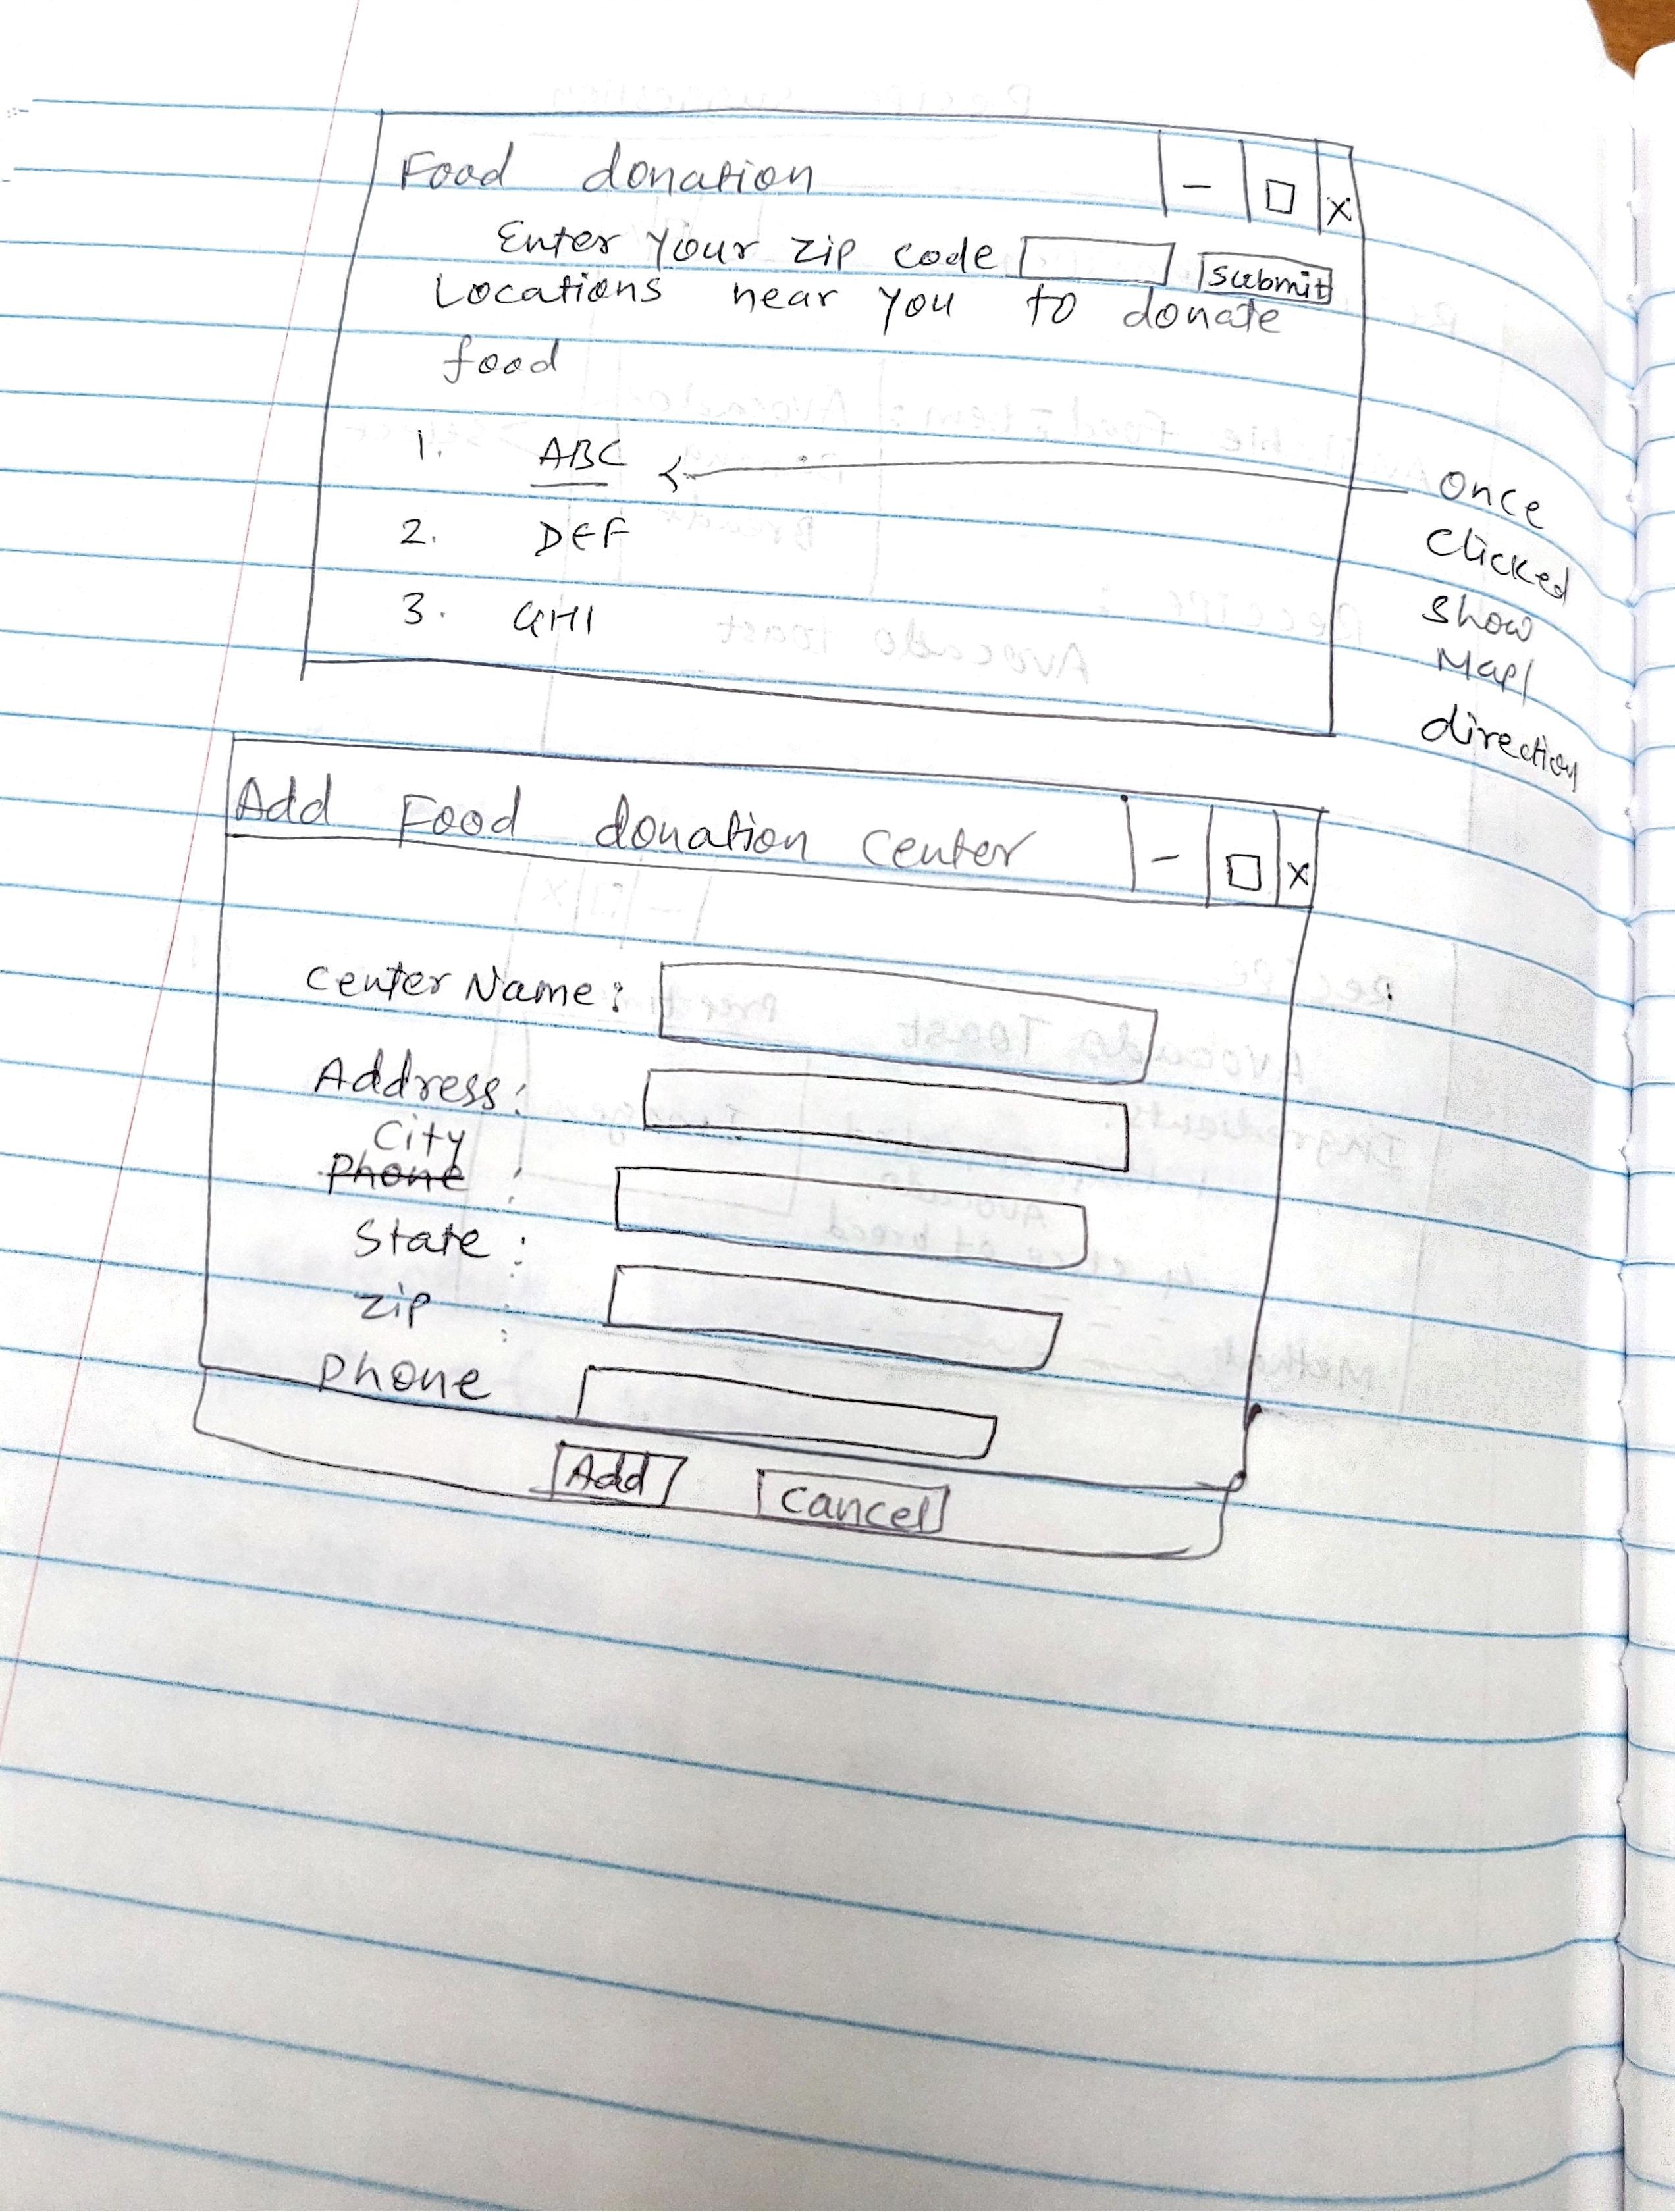 Food donation - □ x
Enter your zip code submit
Locations near you to donate
food
1. ABC
2. DEF
3. GHI
once
clicked
show
Map/
direction
Add Food donation center - □ x
center Name:
Address:
City
Phone :
State :
zip :
phone
Add cancel